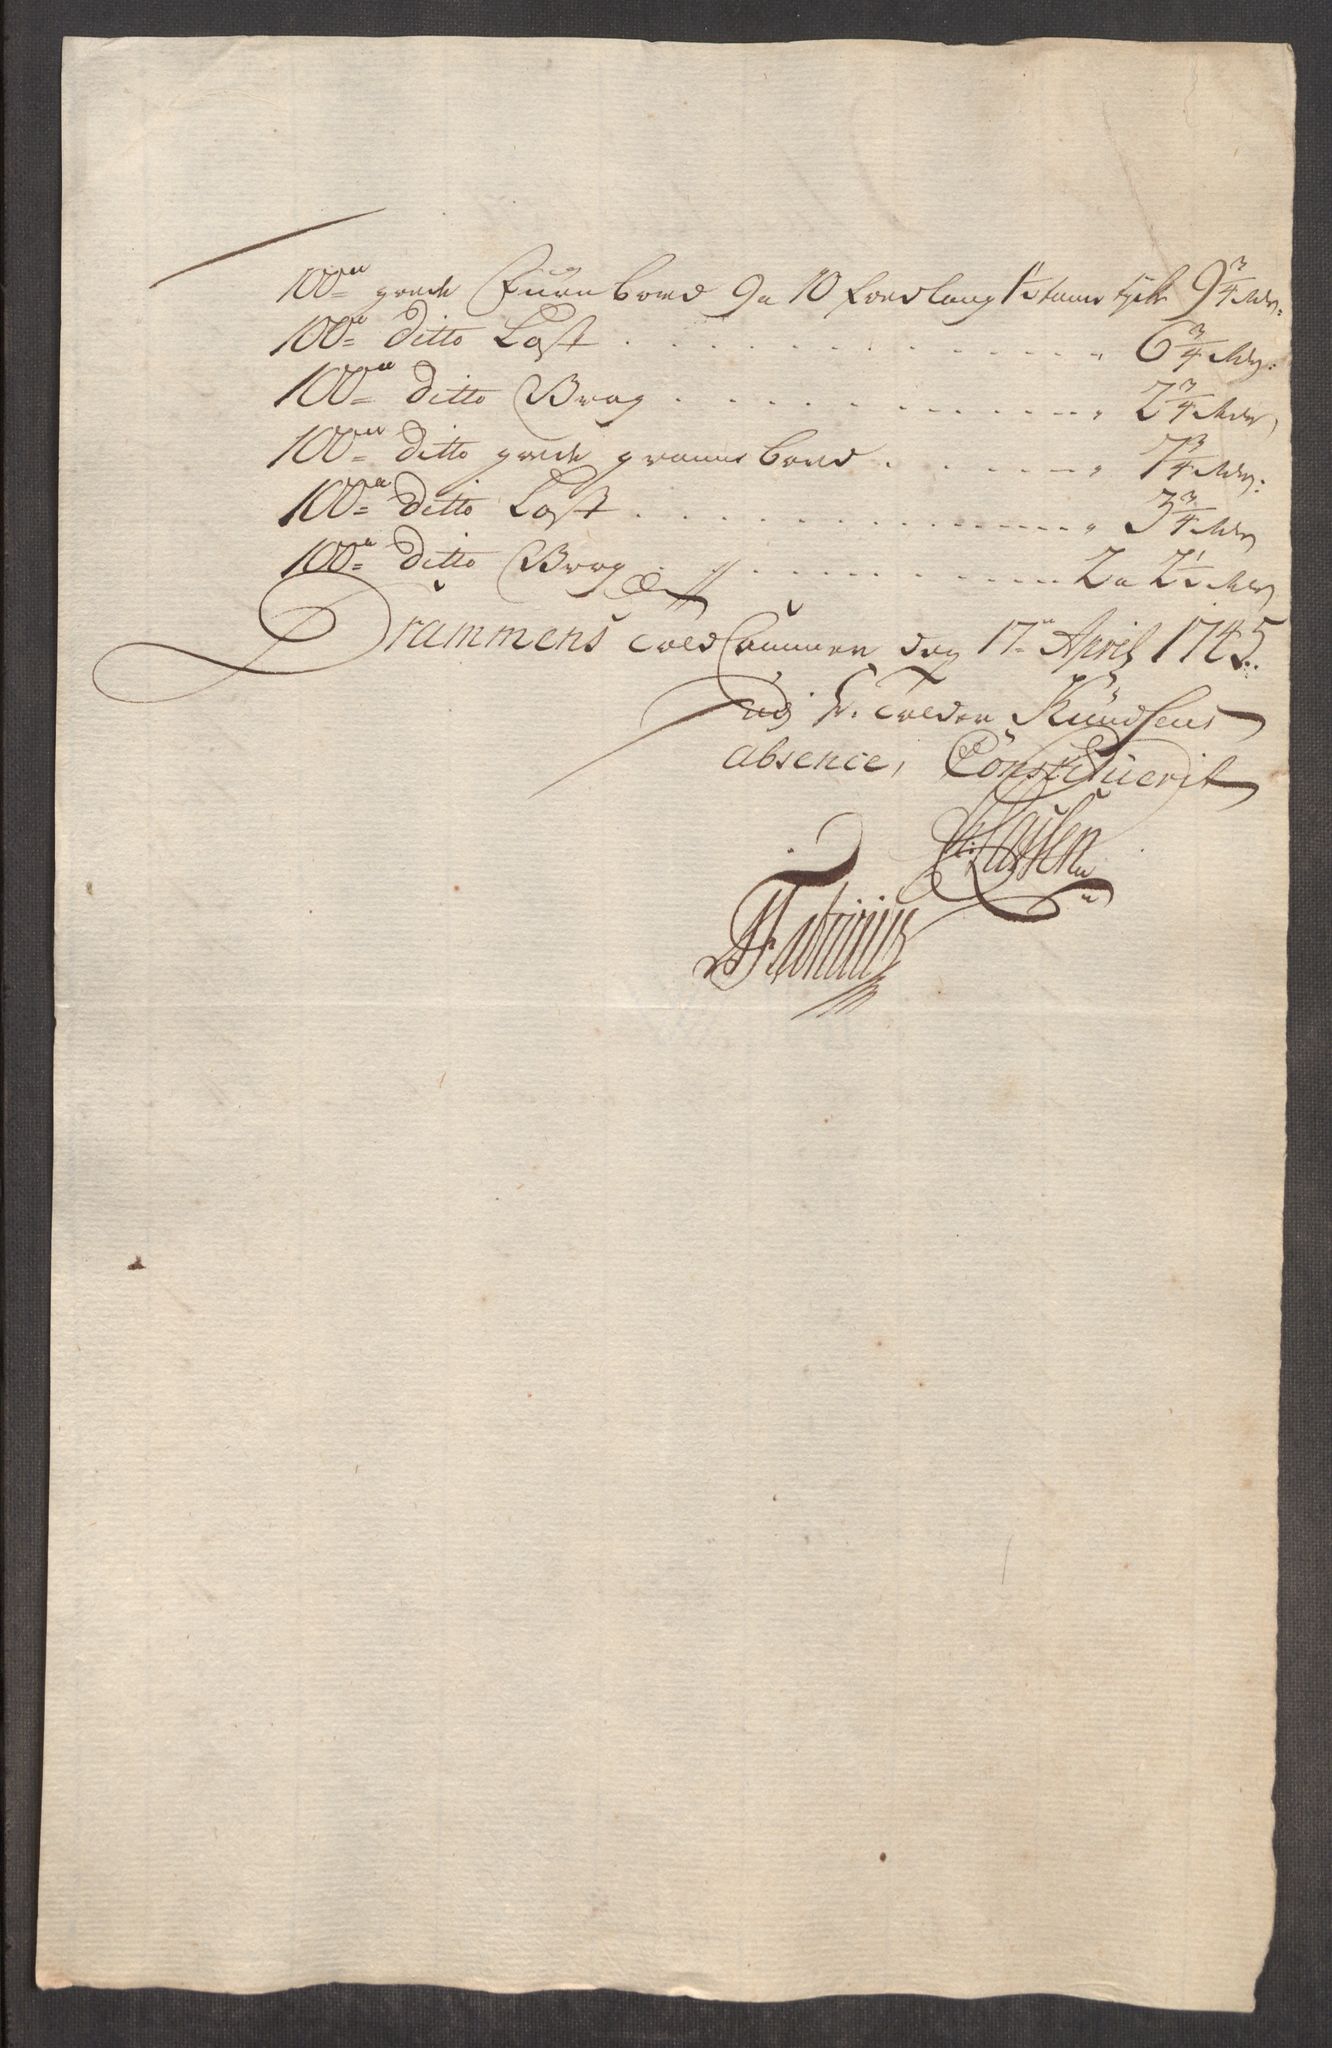 100de goede Furu bord 9 a 10 foed lang 1 1/2 tomme tyk 9 3/4 Mdr:
100de ditto Last . . . . . . . . . . . . . . 6 3/4 Mdr:
100de ditto Vrag . . . . . . . . . . . . . 2 3/4 Mdr,
100de ditto goede granne bord . . . . . . . 7 3/4 Mdr:
100de ditto Last . . . . . . . . . . . . . . 3 3/4 Mdr
100de ditto Vrag . . . . . . . . . . . . 2 a 2 1/2 Mdr
Drammens Told Cammer den 17de April 1745.
udj Hr. Tolder Knudsens
absence, Constituerit
Lassen
Fabricius